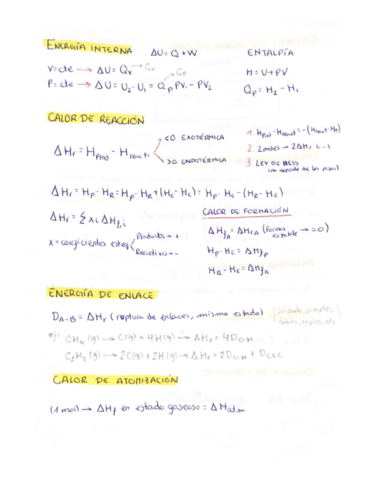 ENERGÍA INTERNA ΔU = Q + W ENTALPÍA
V=cte → ΔU = Qv → Cv H = U + PV
P=cte → ΔU = U2 - U1 = Qp PV1 - PV2 → Cp Qp = H2 - H1
CALOR DE REACCIÓN
ΔHr = Hprod - Hreacti
<0 EXOTÉRMICA
>0 ENDOTÉRMICA
1. Hprod - Hreact = -(Hreact - Hp)
2. 2 moles → 2ΔHr
3. LEY DE HESS
ΔHr = Hp - HR = Hp - HR + (HE - HE) = Hp - HE - (HR - HE)
ΔHr = Σ xi ΔHf,i
x = coeficientes esteq
Productos → +
Reactivos → -
CALOR DE FORMACIÓN
ΔHfA = ΔHrA (forma estable → = 0)
HP - HE = ΔHfP
HR - HE = ΔHfR
ENERGÍA DE ENLACE
DA-B = ΔHr (ruptura de enlaces, mismo estado)
ej: CH4 (g) → C(g) + 4H(g) → ΔHr = 4DC-H
C2H2 (g) → 2C(g) + 2H(g) → ΔHr = 2DC-H + DC≡C
CALOR DE ATOMIZACIÓN
(1 mol) → ΔHf en estado gaseoso = ΔHatm